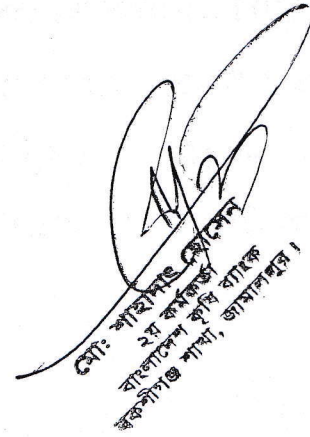 মোঃ শাহাদাৎ হোসেন
২য় কর্মকর্তা
বাংলাদেশ কৃষি ব্যাংক
বকশীগঞ্জ শাখা, জামালপুর।